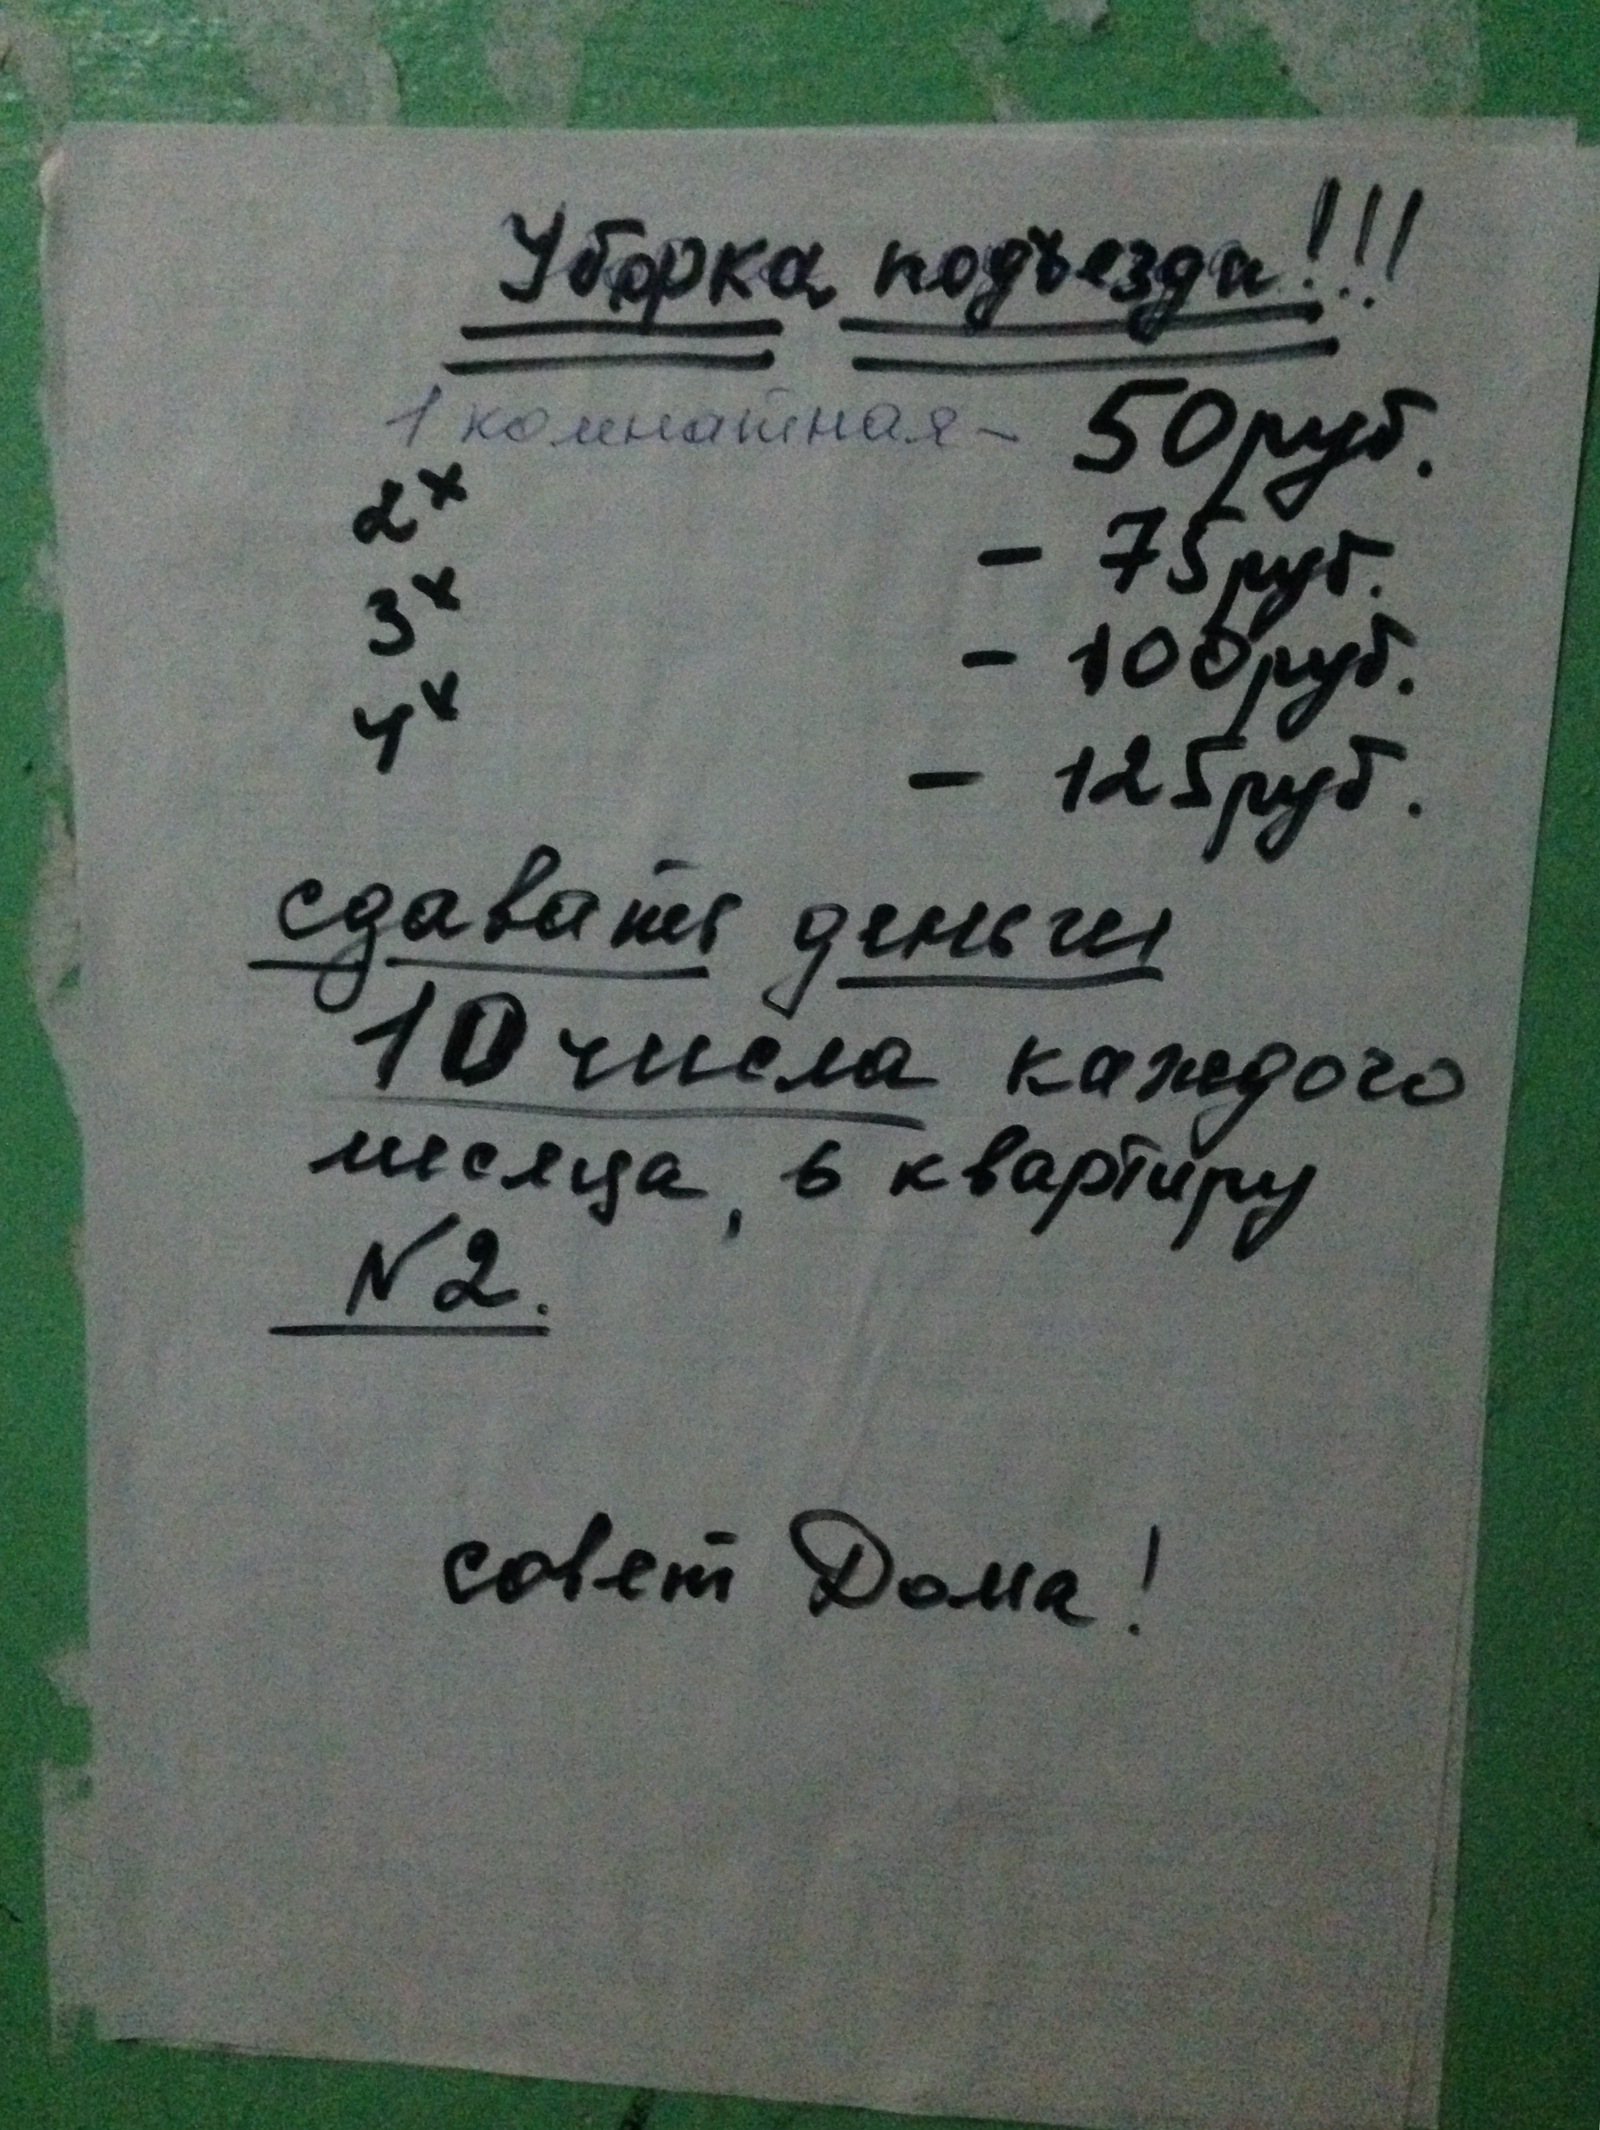 Уборка подъезда!!!
1 комнатная - 50 руб.
2х - 75 руб.
3х - 100 руб.
4х - 125 руб.
сдавать деньги
10 числа каждого
месяца, в квартиру
N 2.
совет Дома!